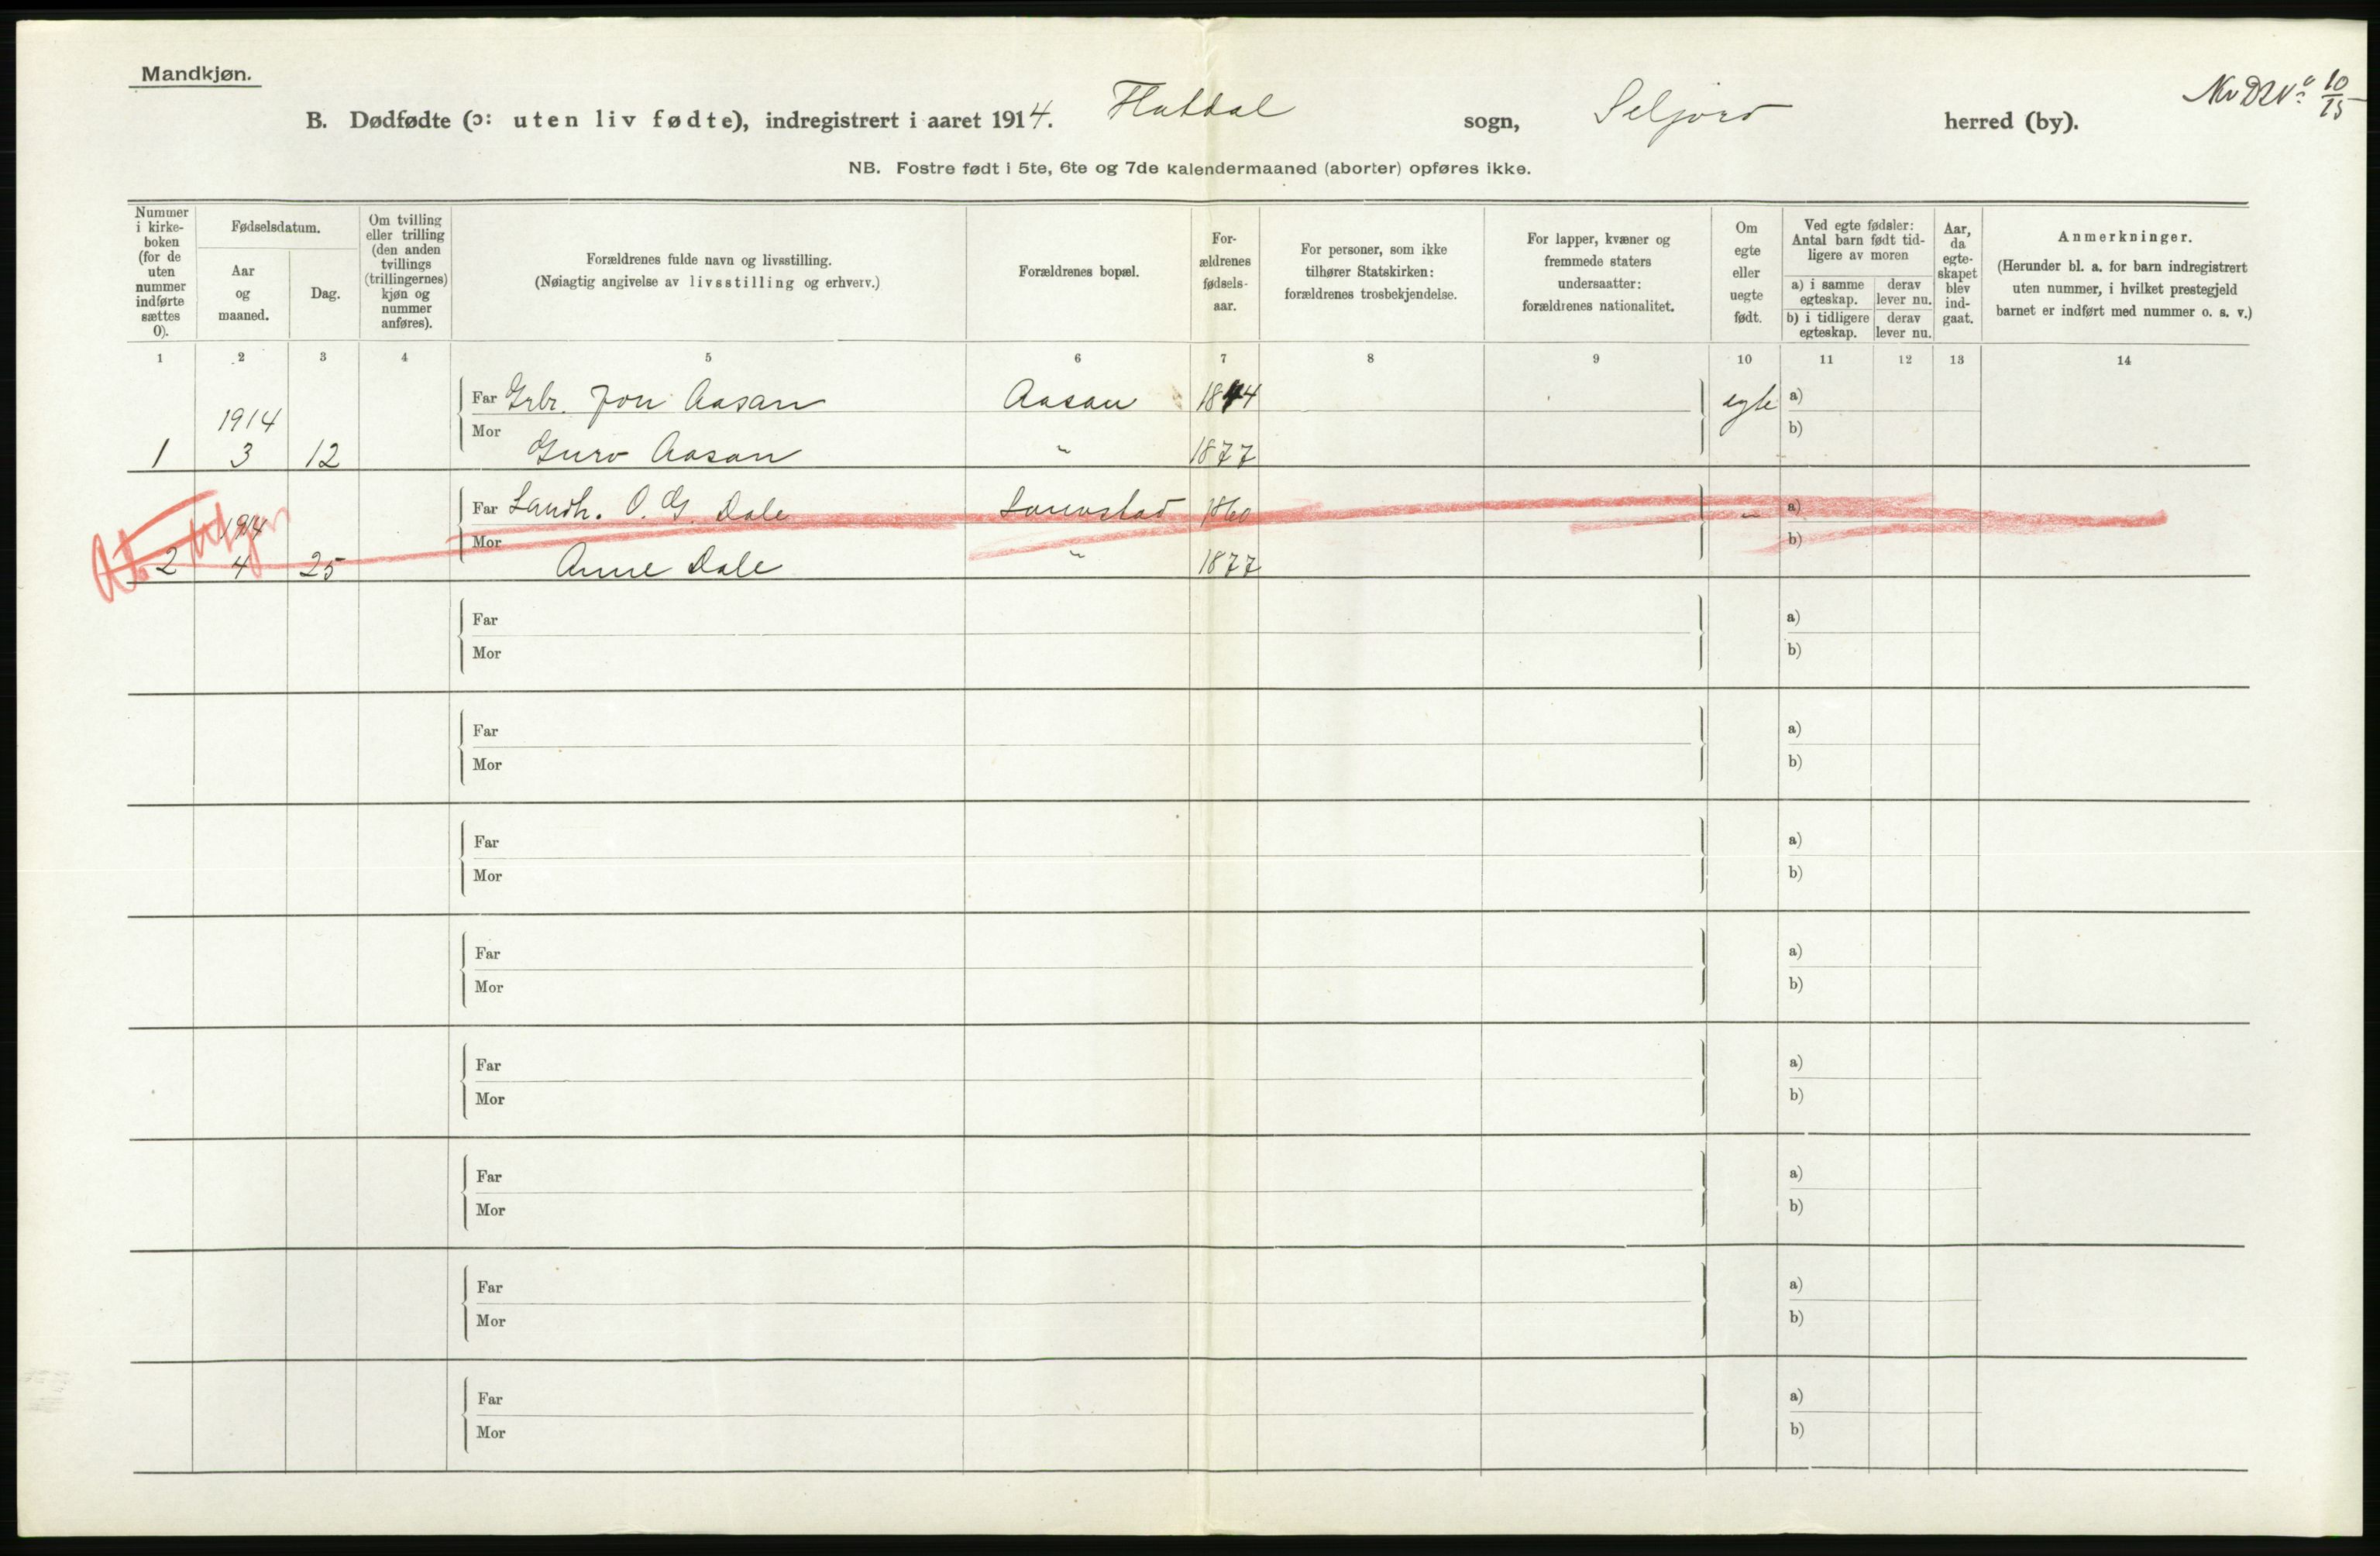 Mandkjøn.
B. Dødfødte (ɔ: uten liv fødte), indregistrert i aaret 1914. Flatdal sogn, Seljord herred (by).
10/15
NB. Fostre født i 5te, 6te og 7de kalendermaaned (aborter) opføres ikke.
Nummer i kirke- boken (for de uten nummer indførte sættes 0).
Fødselsdatum.
Aar og maaned.
Dag.
Om tvilling eller trilling (den anden tvillings (trillingernes) kjøn og nummer anføres).
Forældrenes fulde navn og livsstilling.
(Nøiagtig angivelse av livsstilling og erhverv.)
Forældrenes bopæl.
For- ældrenes fødsels- aar.
For personer, som ikke tilhører Statskirken: forældrenes trosbekjendelse.
For lapper, kvæner og fremmede staters undersaatter: forældrenes nationalitet.
Om egte eller uegte født.
Ved egte fødsler: Antal barn født tid- ligere av moren
a) i samme egteskap.
derav lever nu.
b) i tidligere egteskap.
derav lever nu.
Aar, da egte- skapet blev ind- gaat.
Anmerkninger.
(Herunder bl. a. for barn indregistrert uten nummer, i hvilket prestegjeld barnet er indført med nummer o. s. v.)
1 2 3 4 5 6 7 8 9 10 11 12 13 14
Far Grbr. Jon Aasan Aasan 1844 egte a)
1914
Mor b)
1 3 12 Guro Aasan " 1877
Far Landh. O. G. Dale 1860 " a)
1914
Mor b)
2 4 25 Anne Dale " 1877
Far a)
Mor b)
Far a)
Mor b)
Far a)
Mor b)
Far a)
Mor b)
Far a)
Mor b)
Far a)
Mor b)
Far a)
Mor b)
Far a)
Mor b)